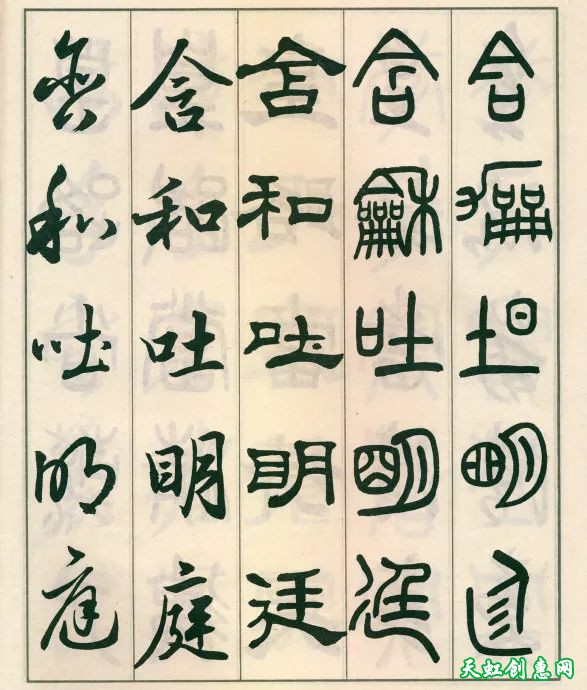 含和吐明庭
含龢吐明廷
含和吐明廷
含和吐明庭
含和吐明庭
天虹创意网